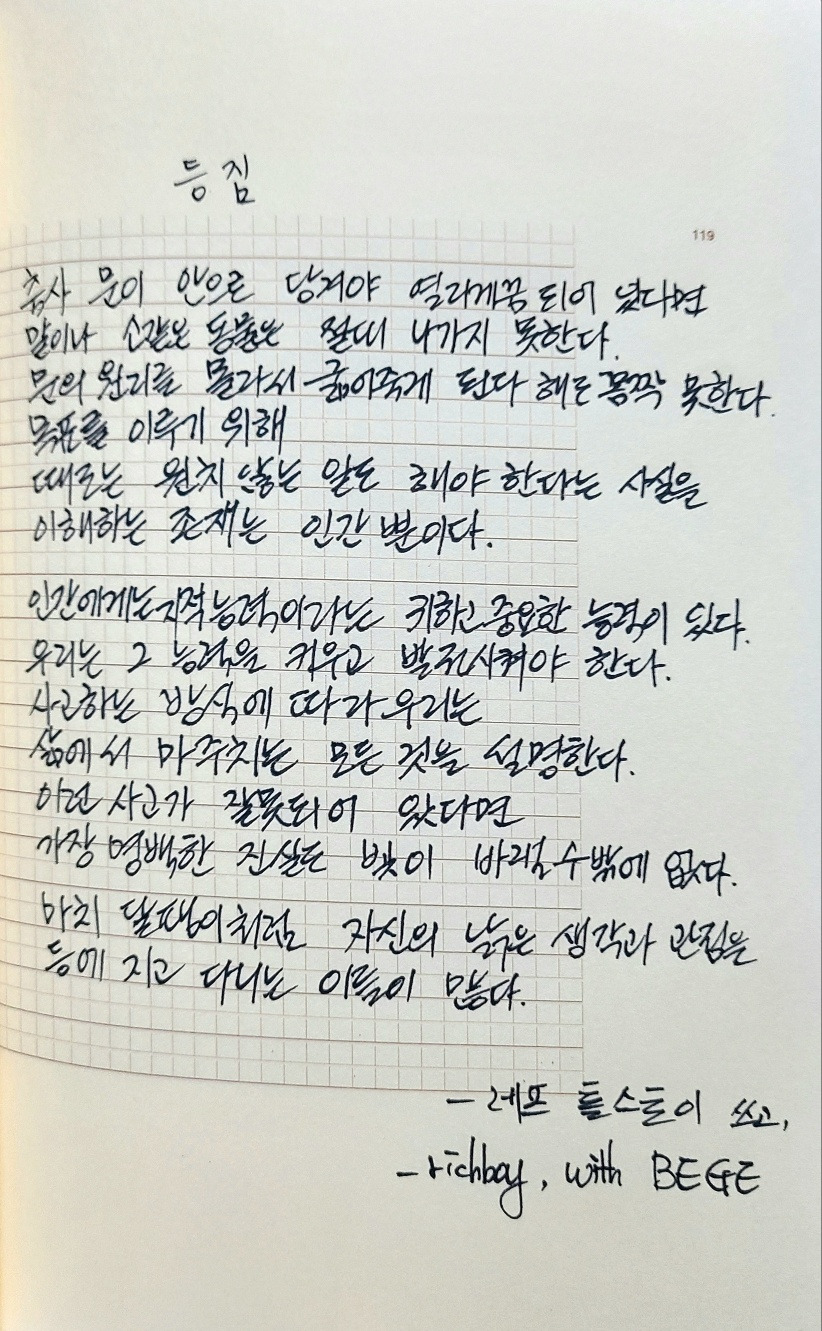 등짐
119
축사 문이 안으로 당겨야 열리게끔 되어 있다면
말이나 소같은 동물은 절대 나가지 못한다.
문의 원리를 몰라서 굶어죽게 된다 해도 꼼짝 못한다.
목표를 이루기 위해
때로는 원치 않는 일도 해야 한다는 사실을
이해하는 존재는 인간 뿐이다.
인간에게는 지적능력이라는 귀하고 중요한 능력이 있다.
우리는 그 능력을 키우고 발전시켜야 한다.
사고하는 방식에 따라 우리는
삶에서 마주치는 모든 것을 설명한다.
이런 사고가 잘못되어 있다면
가장 명백한 진실도 빛이 바랠 수밖에 없다.
마치 달팽이처럼 자신의 낡은 생각과 관점을
등에 지고 다니는 이들이 많다.
- 레프 톨스토이 쓰고,
- richboy, with BEGE